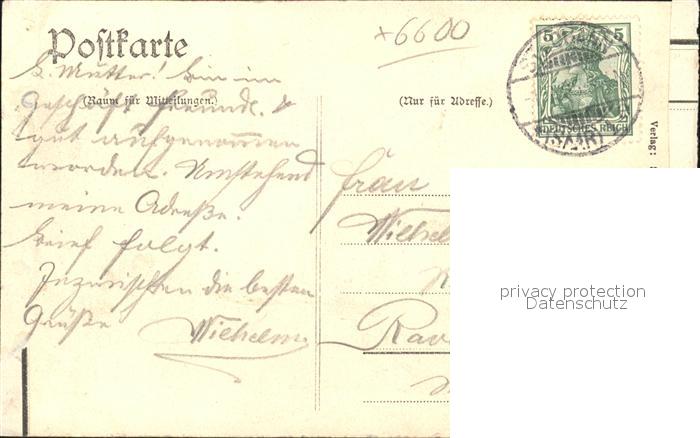 *6600
Postkarte
(Raum für Mitteilungen.)
(Nur für Adresse.)
L. Mutter! Bin im
Geschäft freundl. &
gut aufgenommen
worden. Umstehend
meine Adreße.
Brief folgt.
Inzwischen die besten
Grüße Wilhelm.
5 5
DEUTSCHES REICH
(SAAR)
Verlag:
Frau
Wilhelm
Rav
privacy protection
Datenschutz